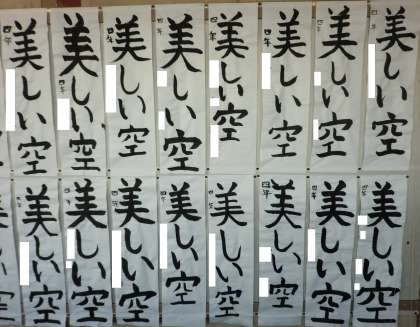 美しい空
四年
美しい空
四年
美しい空
四年
美しい空
四年
美しい空
四年
美しい空
四年
美しい空
四年
美しい空
美しい空
四年
美しい空
四年
美しい空
四年
美しい空
四年
美しい空
四年
美しい空
四年
美しい空
四年
美しい空
四年